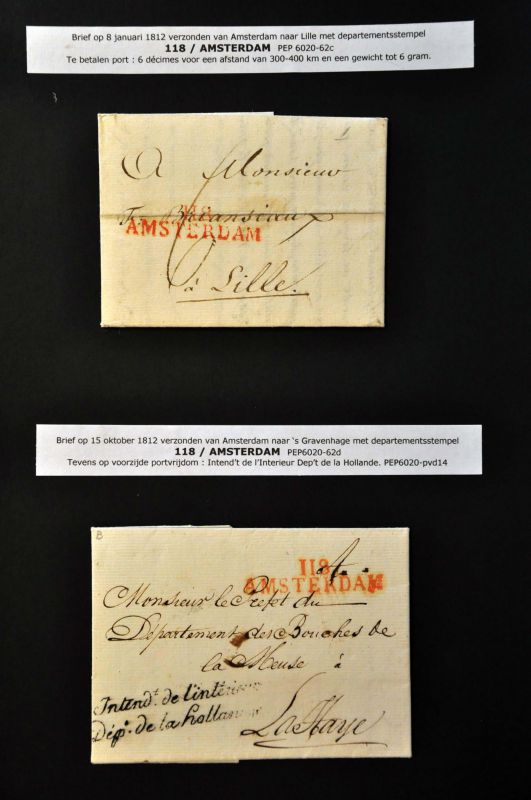 Brief op 8 januari 1812 verzonden van Amsterdam naar Lille met departementsstempel
118 / AMSTERDAM PEP 6020-62c
Te betalen port : 6 décimes voor een afstand van 300-400 km en een gewicht tot 6 gram.
A Monsieur
118
AMSTERDAM
à Lille.
Brief op 15 oktober 1812 verzonden van Amsterdam naar 's Gravenhage met departementsstempel
118 / AMSTERDAM PEP6020-62d
Tevens op voorzijde portvrijdom : Intend't de l'Interieur Dep't de la Hollande. PEP6020-pvd14
B
118
AMSTERDAM
Monsieur le Préfet du
Département des Bouches de
la Meuse à
Intendt. de l'intérieur
Dépt. de la hollande
La Haye